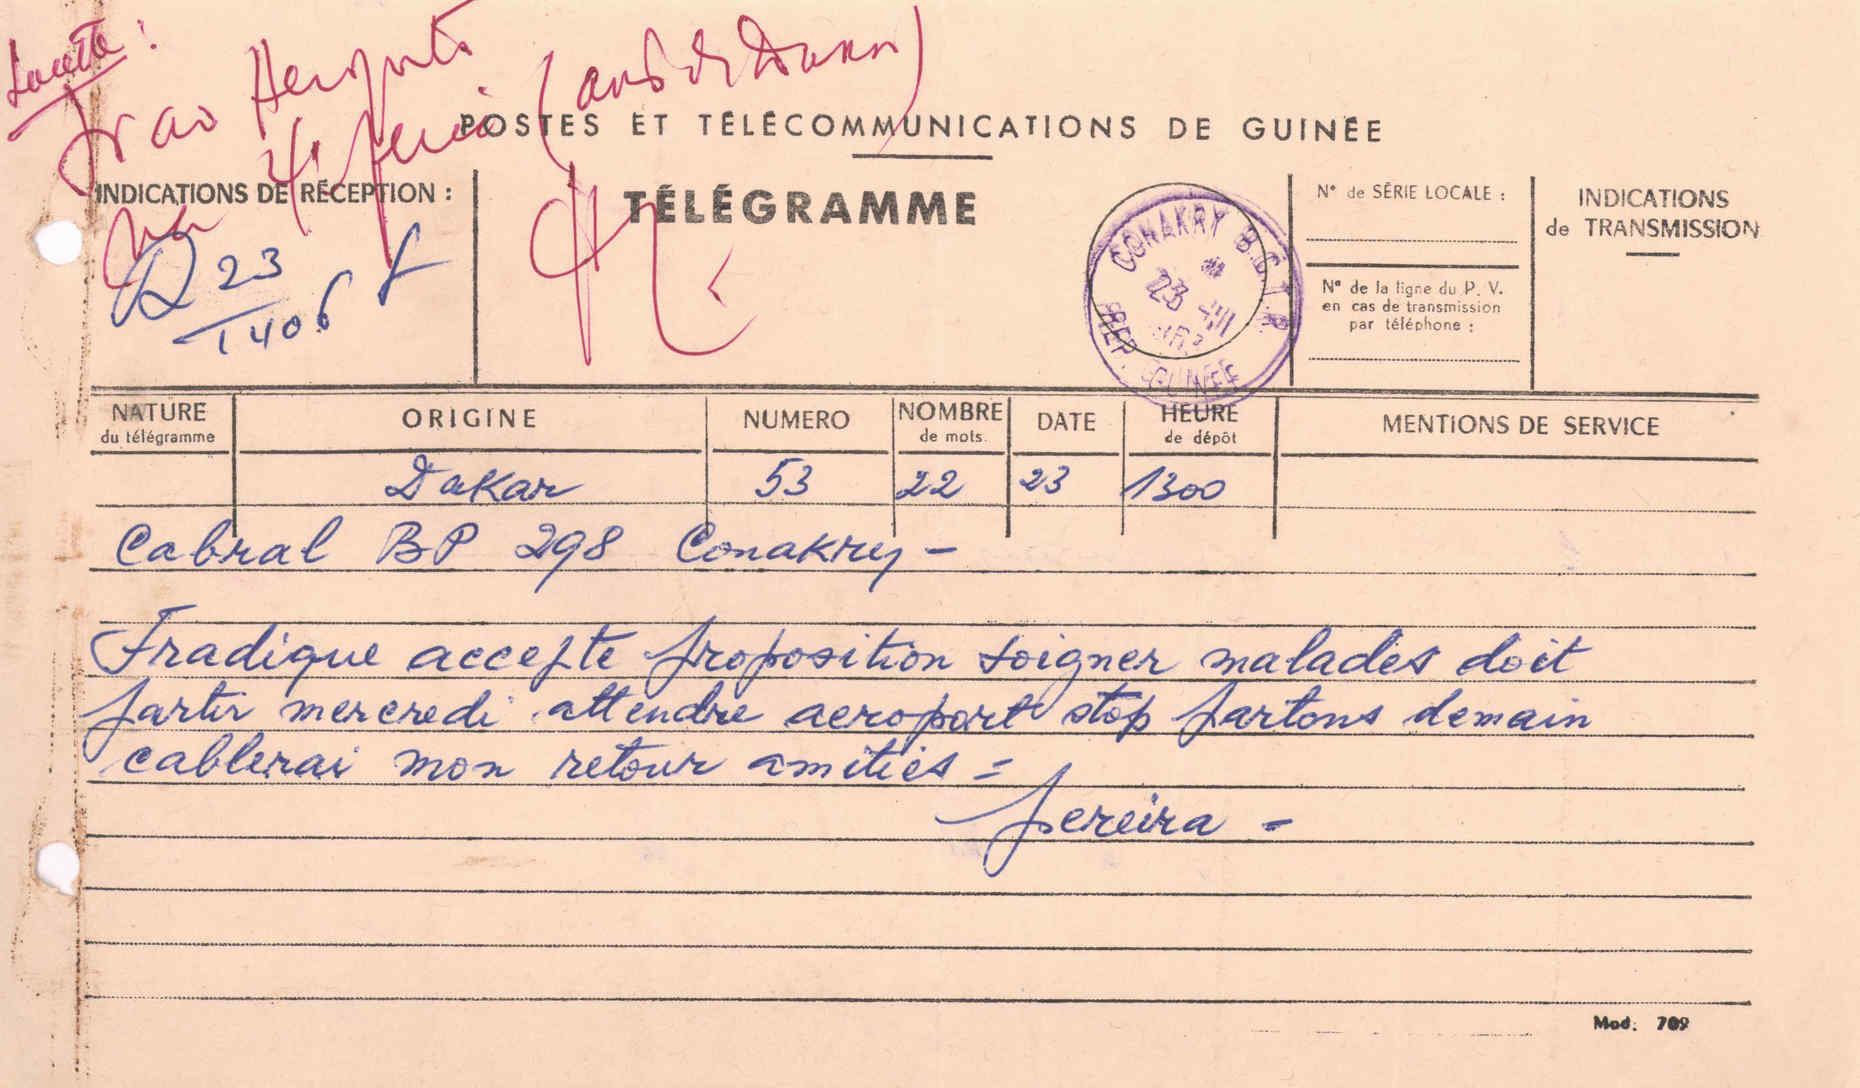 POSTES ET TÉLÉCOMMUNICATIONS DE GUINÉE
INDICATIONS DE RÉCEPTION :
TÉLÉGRAMME
N° de SÉRIE LOCALE :
INDICATIONS
de TRANSMISSION
N° de la ligne du P. V.
en cas de transmission
par téléphone :
23
1406
CONAKRY B.C.T.R
23
REP. GUINEE
NATURE
du télégramme
ORIGINE
NUMERO
NOMBRE
de mots
DATE
HEURE
de dépôt
MENTIONS DE SERVICE
Dakar 53 22 23 1300
Cabral BP 298 Conakry -
Fradique accepte proposition soigner malades doit
partir mercredi attendre aeroport stop partons demain
cablerai mon retour amitiés =
pereira -
Mod. 709